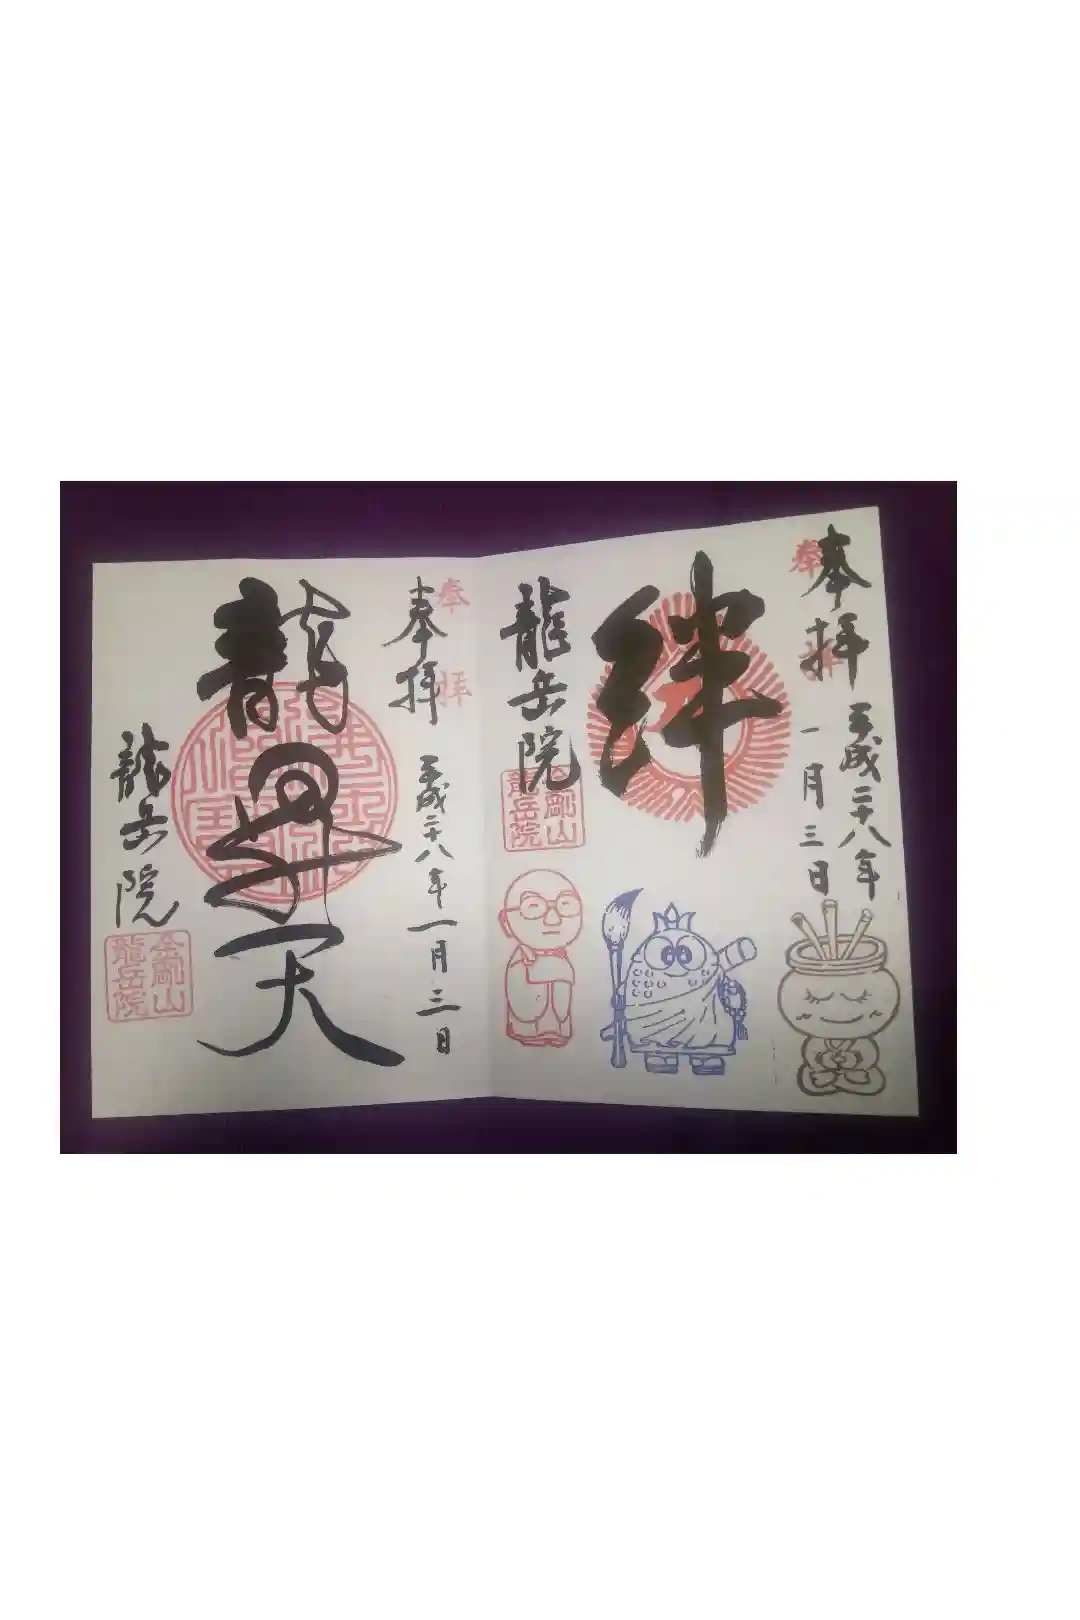 奉拝
奉拝
平成二十八年
一月三日
絆
龍岳院
金剛山
龍岳院
奉拝
奉拝
平成二十八年一月三日
龍
天
龍岳院
金剛山
龍岳院